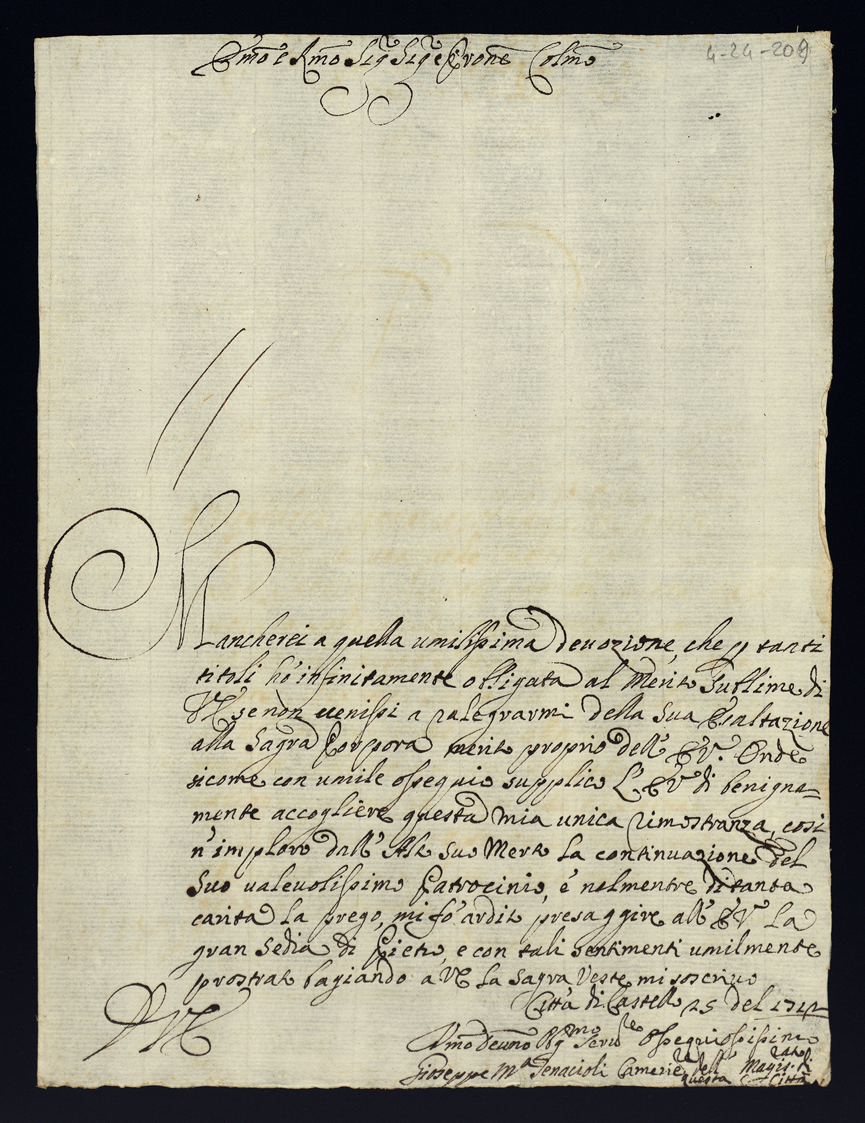 Emo e Rmo Sigr Sigr e Prone Colmo
4-24-209
Mancherei a quella umilissima devozione, che p tanti
titoli hò infinitamente obligata al Merito sublime di
VE se non venissi a ralegrarmi della sua Esaltazione
alla Sagra Porpora merito proprio dell' EV. Onde
sicome con umile ossequio supplico L' EV di benigna=
mente accogliere questa mia unica rimostranza, così
n'imploro dall' Alto suo Merto la continuazione del
suo valevolissimo Patrocinio, è nelmentre di tanta
carità la prego, mi fò ardito presaggire all' EV La
gran Sedia di Pietro, e con tali sentimenti umilmente
prostrato bagiando a VE la Sagra Veste mi soscrivo
VE
Città di Castello 25 del 1712
Umo Devmo Obgmo Servre Ossequiosissimo
Gioseppe Ma Tenacioli Camerie dell' Magisrato di
questa Città